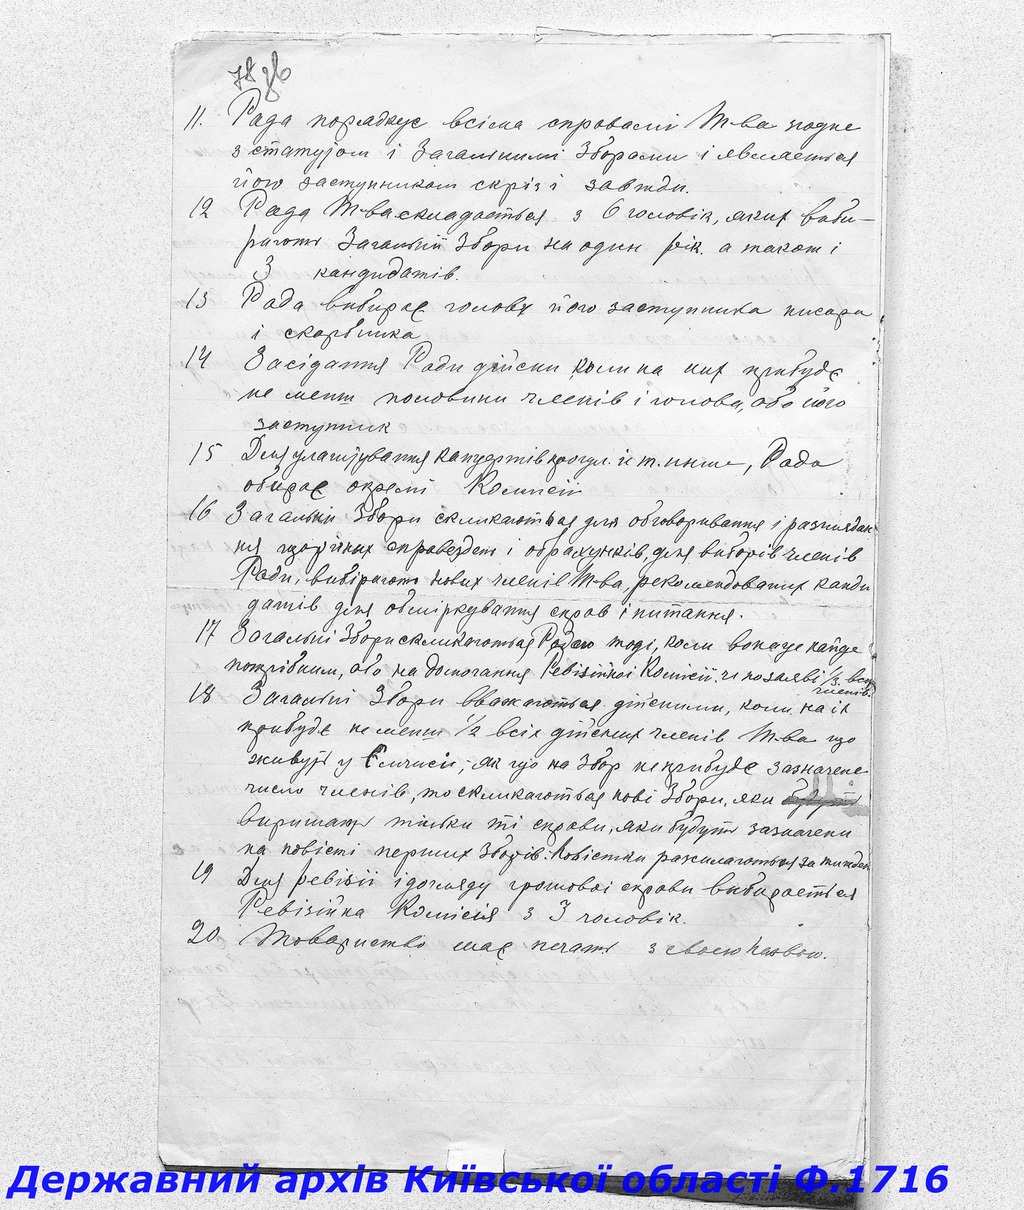 78 зв
11. Рада порядкує всіма справамі Т-ва згодне
з статутом і Загальнимі Зборами і являеться
його заступником скрізь і завжди.
12 Рада Т-ва складаеться з 6 головік, яких виби-
рають Загальні Збори на один рік. а також і
3 кандидатів.
13 Рада вибірає голову його заступника писаря
і скарбника
14 Засідання Ради дійсни, коли на них прибуде
не менш половини членів і голова, або його
заступник
15 Для улаштування концертів прогул. і т. инше, Рада
обірає окремі Комисіи
16 Загальни Збори скликаються для обговорювання і розглядан-
ня щорічних справоздан і обрахунків, для виборів членів
Ради, вибірають нових членів Т-ва, рекомендованих канди
датів для обміркування справ і питання.
17 Загальні Збори скликаються Радою тоді, коли вона це найде
потрібним, або на домогання Ревізійноі Комісіі. чи по заяві 1/3 всіх
членів.
18 Загальні Збори вважаються дійсними, коли на іх
прибуде не менш 1/2 всіх дійсних членів Т-ва що
живуть у ; як що на Збор не прибуде зазначене
число членів, то скликаються нові Збори, яки будуть
вирішають тільки ті справи, яки будуть зазначени
на повісті перших Зборів. Повістки розсилаються за тиждень
19 Для ревізіі і догляду грошовоі справи вибирається
Ревізійна Комісія з 3 чоловік.
20 Товариство має печать з своею назвою.
Державний архів Київської області Ф.1716